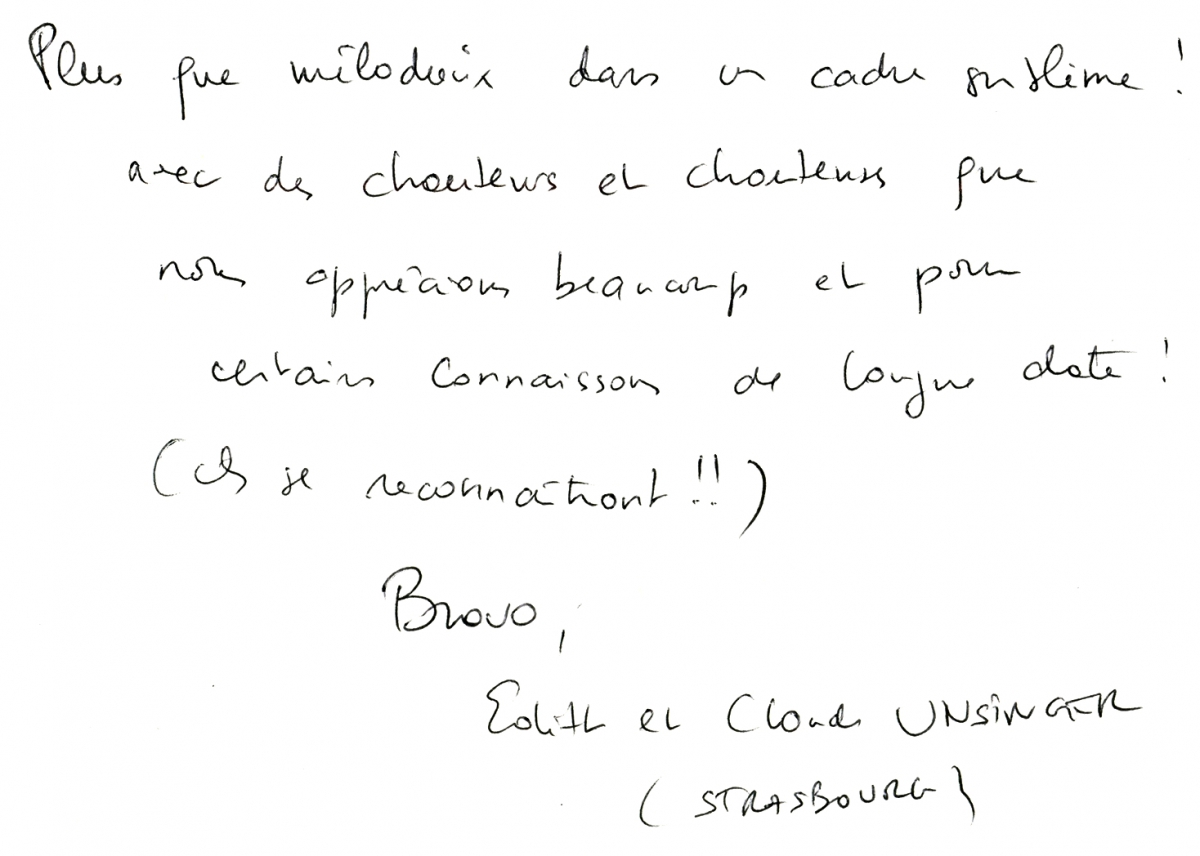 Plus que mélodieux dans un cadre sublime !
avec des chanteurs et chanteuses que
nous apprécions beaucoup et pour
certains connaissons de longue date !
(ils se reconnaîtront !!)
Bravo,
Edith et Claude UNSINGER
(STRASBOURG)